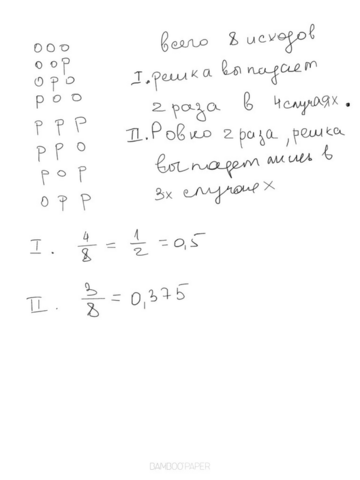 ООО
ООР
ОРО
РОО
РРР
РРО
РОР
ОРР
всего 8 исходов
I. решка выпадает
2 раза в 4 случаях.
II. Ровно 2 раза, решка
выпадет лишь в
3х случаях
I. 4/8 = 1/2 = 0,5
II. 3/8 = 0,375
BAMBOOPAPER